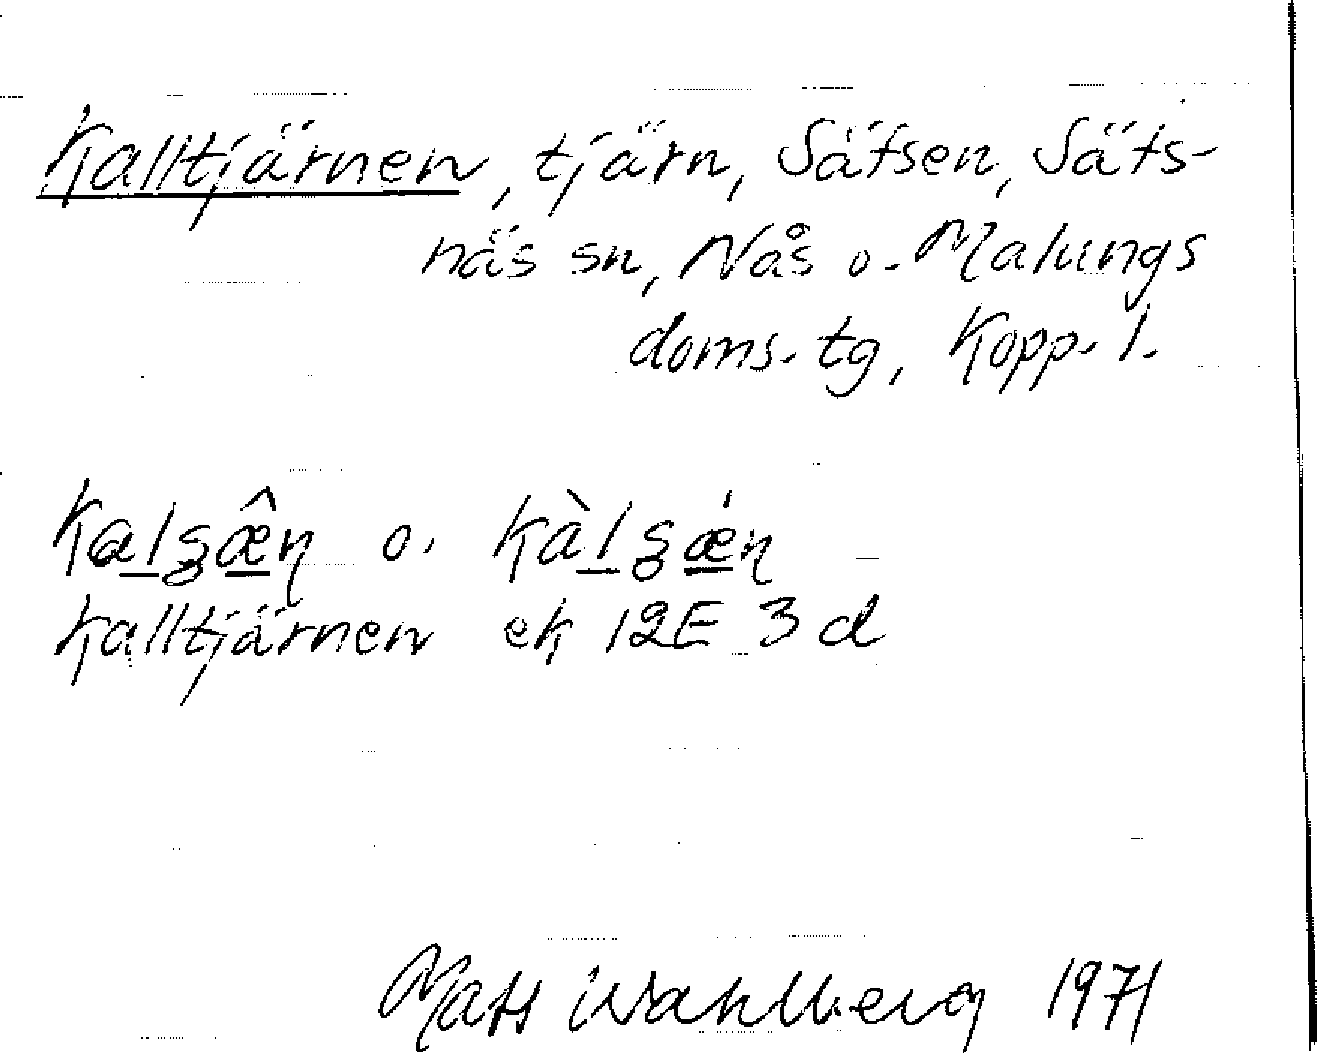 Kalltjärnen, tjärn, Säfsen, Säfs-
näs sn, Nås o. Malungs
doms. tg, Kopp. l.
o.
Kalltjärnen ek 12E 3d
Mats Wahlberg 1971